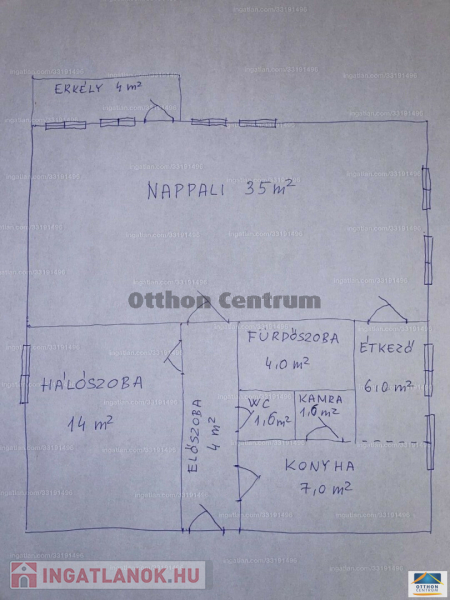 ERKÉLY 4 m²
NAPPALI 35 m²
Otthon Centrum
FÜRDŐSZOBA
4,0 m²
ÉTKEZŐ
6,0 m²
HÁLÓSZOBA
14 m²
ELŐSZOBA
4 m²
WC
1,6 m²
KAMRA
1,6 m²
KONYHA
7,0 m²
INGATLANOK.HU
OTTHON
CENTRUM